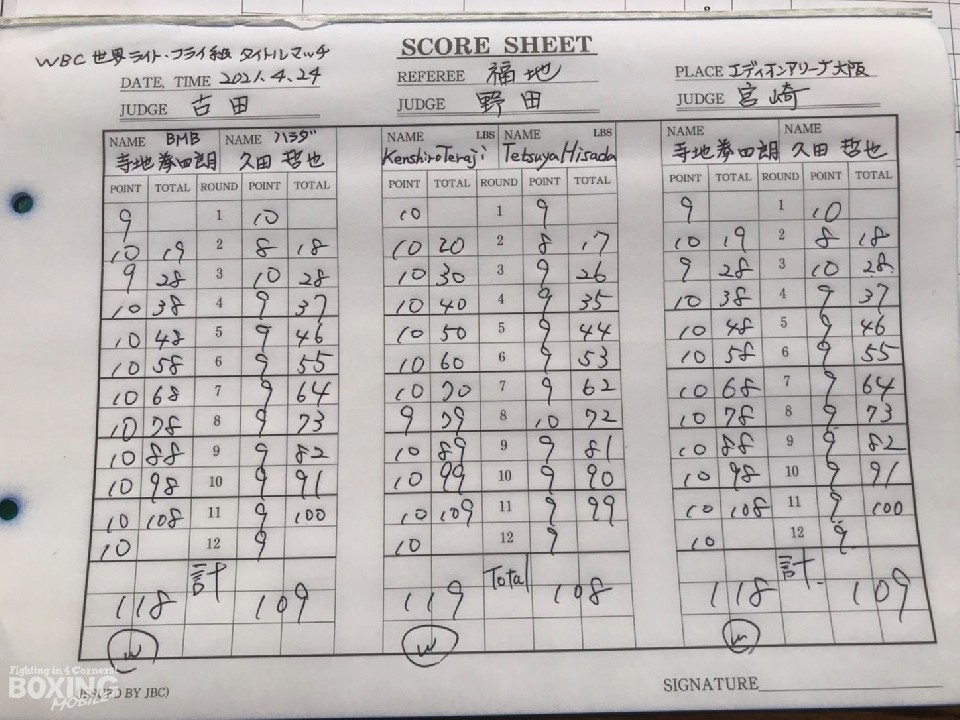 WBC 世界ライト・フライ級 タイトルマッチ
SCORE SHEET
DATE, TIME 2021.4.24 REFEREE 福地 PLACE エディオンアリーナ大阪
JUDGE 古田 JUDGE 野田 JUDGE 宮崎
NAME BMB NAME ハラダ NAME LBS NAME LBS NAME NAME
寺地拳四朗 久田哲也 Kenshiro Teraji Tetsuya Hisada 寺地拳四朗 久田哲也
POINT TOTAL ROUND POINT TOTAL POINT TOTAL ROUND POINT TOTAL POINT TOTAL ROUND POINT TOTAL
9 1 10 10 1 9 9 1 10
10 19 2 8 18 10 20 2 8 17 10 19 2 8 18
9 28 3 10 28 10 30 3 9 26 9 28 3 10 28
10 38 4 9 37 10 40 4 9 35 10 38 4 9 37
10 48 5 9 46 10 50 5 9 44 10 48 5 9 46
10 58 6 9 55 10 60 6 9 53 10 58 6 9 55
10 68 7 9 64 10 70 7 9 62 10 68 7 9 64
10 78 8 9 73 9 79 8 10 72 10 78 8 9 73
10 88 9 9 82 10 89 9 9 81 10 88 9 9 82
10 98 10 9 91 10 99 10 9 90 10 98 10 9 91
10 108 11 9 100 10 109 11 9 99 10 108 11 9 100
10 12 9 10 12 9 10 12 9
118 計 109 119 Total 108 118 計 109
W W W
Fighting in 4 Corners!
BOXING
MOBILE
(ISSUED BY JBC) SIGNATURE